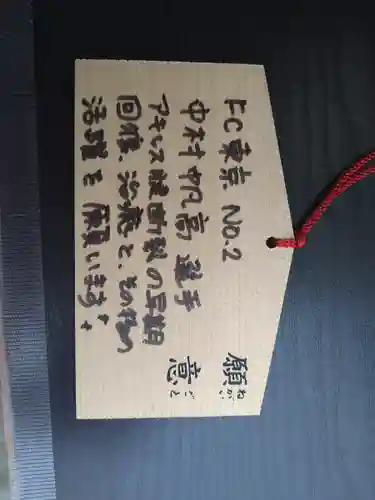 願意
ねがいごと
FC東京 NO.2
中村帆高選手
アキレス腱断裂の早期
回復、治癒と、その後の
活躍を願います。